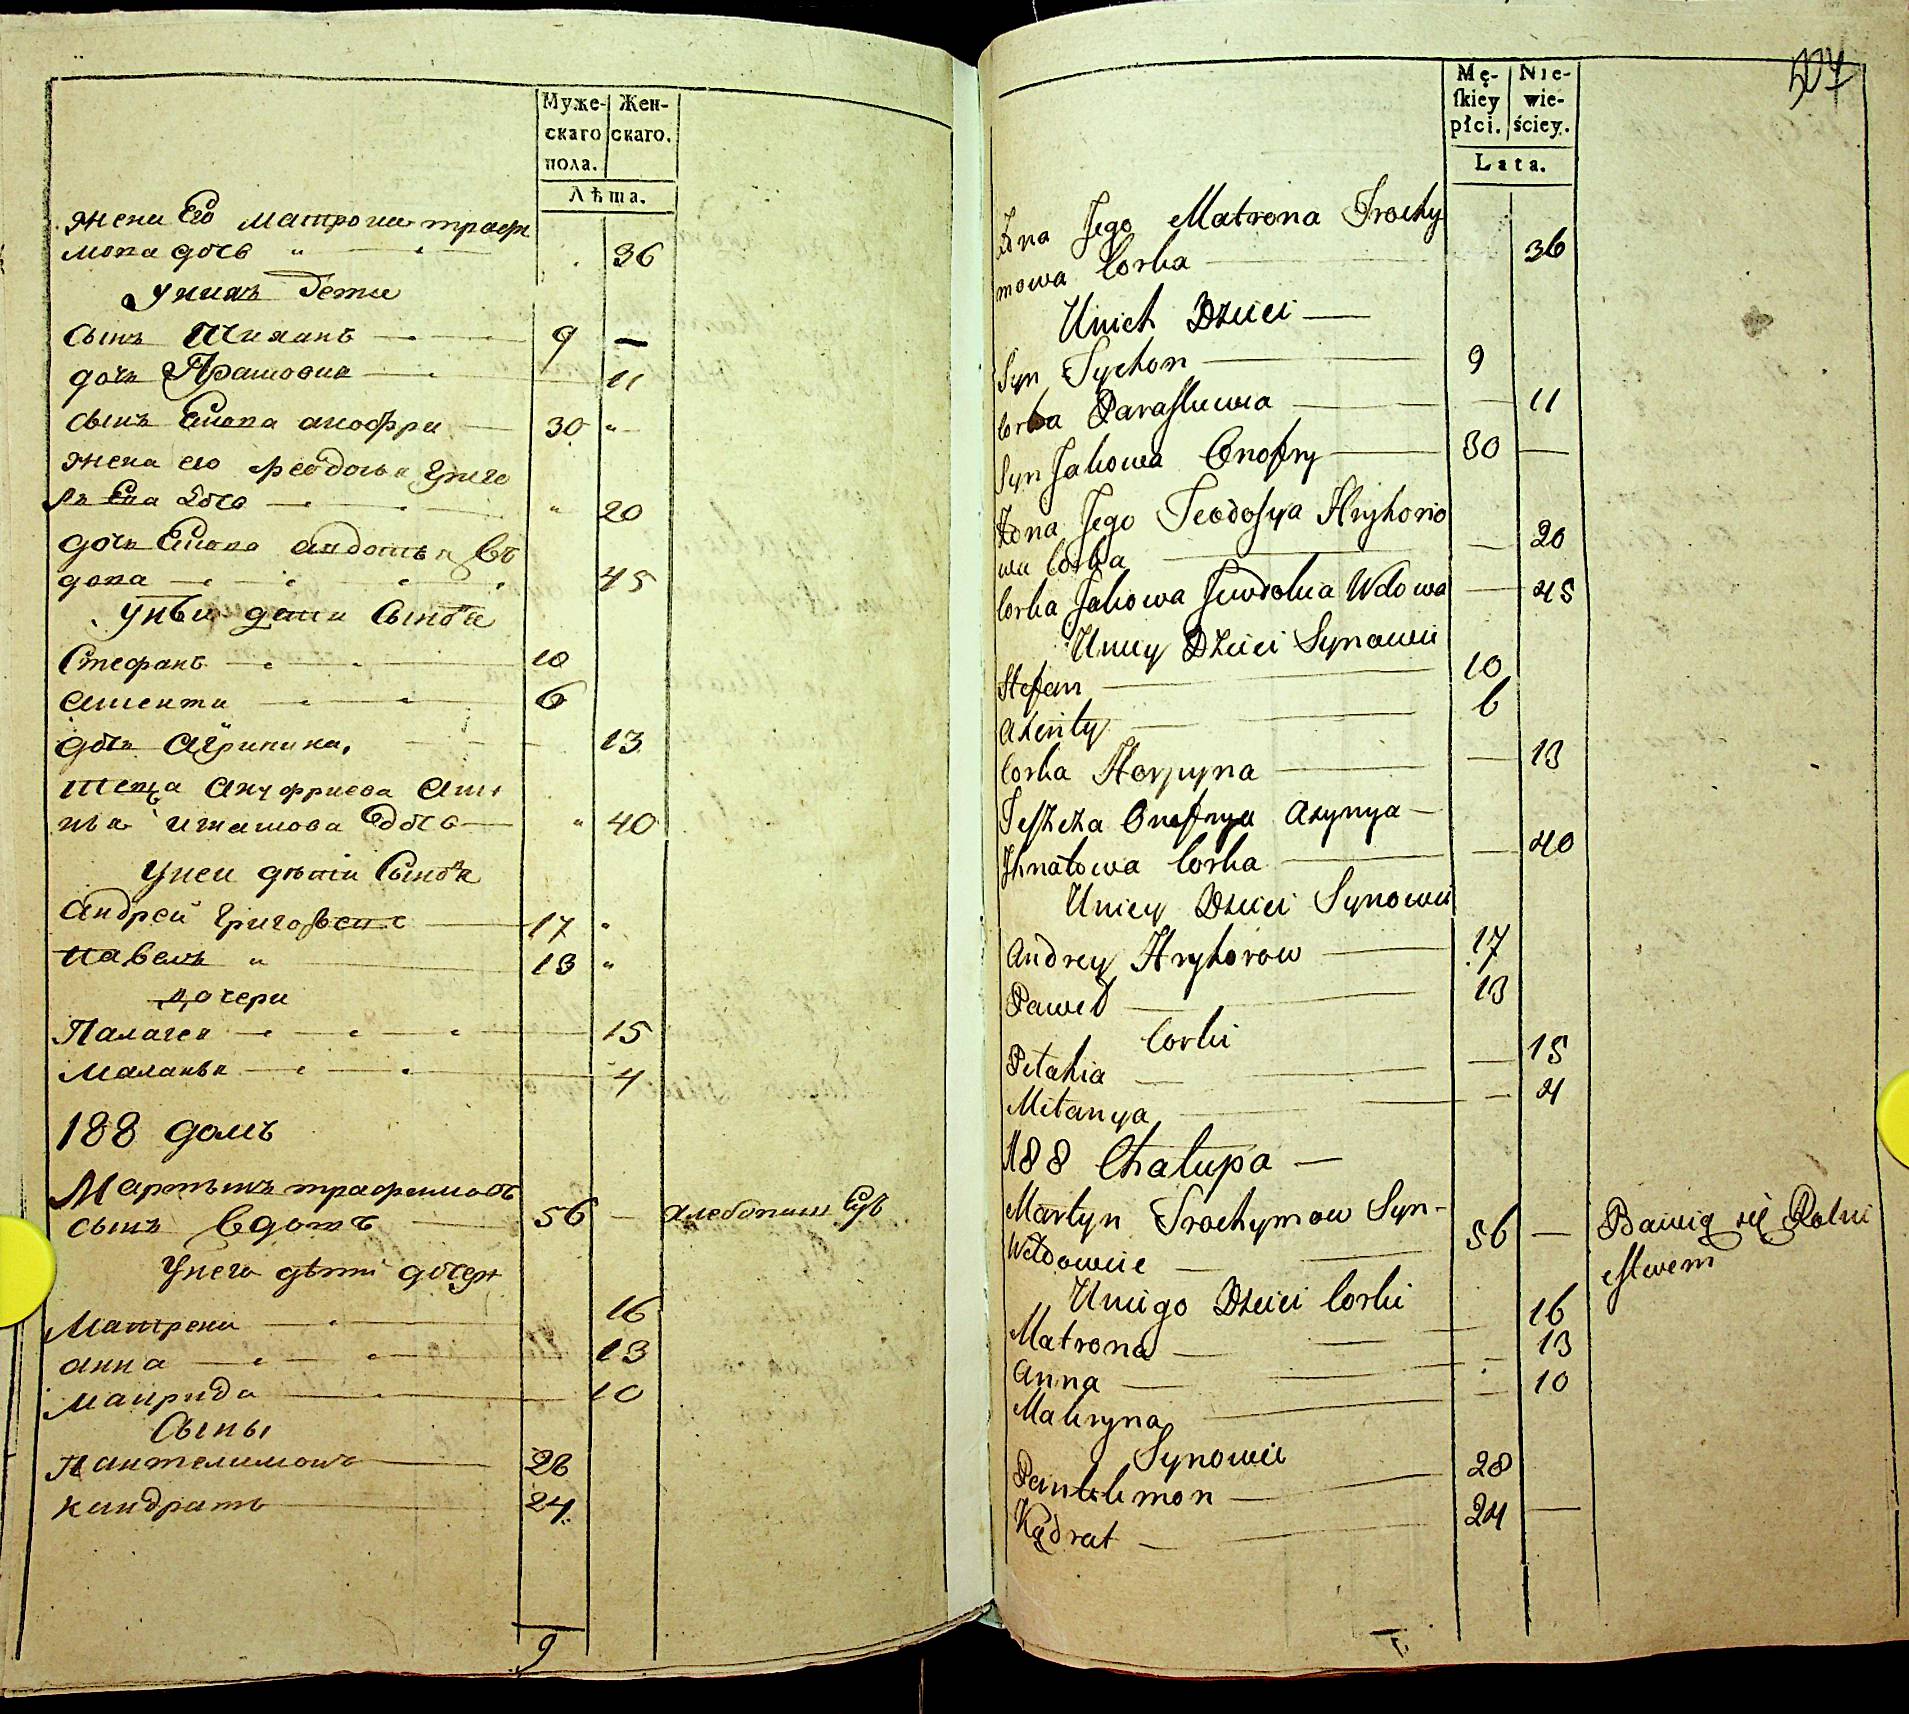 Муже-
скаго
пола.
Жен-
скаго.
Лѣта.
жена Его матрона трафи
мова дочь 36
у нихъ дети
сынъ Тиханъ 9 —
дочь Прасковия 11
сынъ Якова анофри 30
жена его феодосья григо
рьева дочь 20
дочь Якова авдотья въ
дова 45
у нѣи дети Сыновя
Стефанъ 10
6
дочь Агрипина, 13
теща Ануфриева
игнатова дочь 40
у неи дѣти Сыновя
Андрей григорьевъ 17
павелъ 13
дочери
Палагея 15
Маланья 4
188 домъ
Мартынъ трафимовъ
сынъ вдовъ 56 — хлебопашецъ
у него дѣти дочери
Матрена 16
анна 13
10
Сыны
Пантелимонъ 28
кандратъ 24
9
Mę-
skiey
płci.
Nie-
wie-
ściey.
Lata.
507
Żona Jego Matrona Trochy
mowa Corka 36
U nich Dzieci
Syn Tychon 9
Corka Paraskiewia 11
Syn Jakowa Onofry 30 —
Żona Jego Teodosya Hryhorio
wa Corka — 20
Corka Jakowa Jewdokia Wdowa — 45
U niey Dzieci Synowie
Stefan 10
Axenty 6
Corka Horpyna — 13
Teszcza Onofrya Axynya
Ihnatowa Corka — 40
U niey Dzieci Synowie
Andrey Hryhorow 17
Paweł 13
Corki
Pełahia — 15
Miłanya — 4
188 Chałupa —
Martyn Trochymow Syn- 56 — Bawią się Rolni
Wdowiec ctwem
U niego Dzieci Corki
Matrona 16
Anna 13
Makryna 10
Synowie
Pantelimon 28
Kądrat 24 —